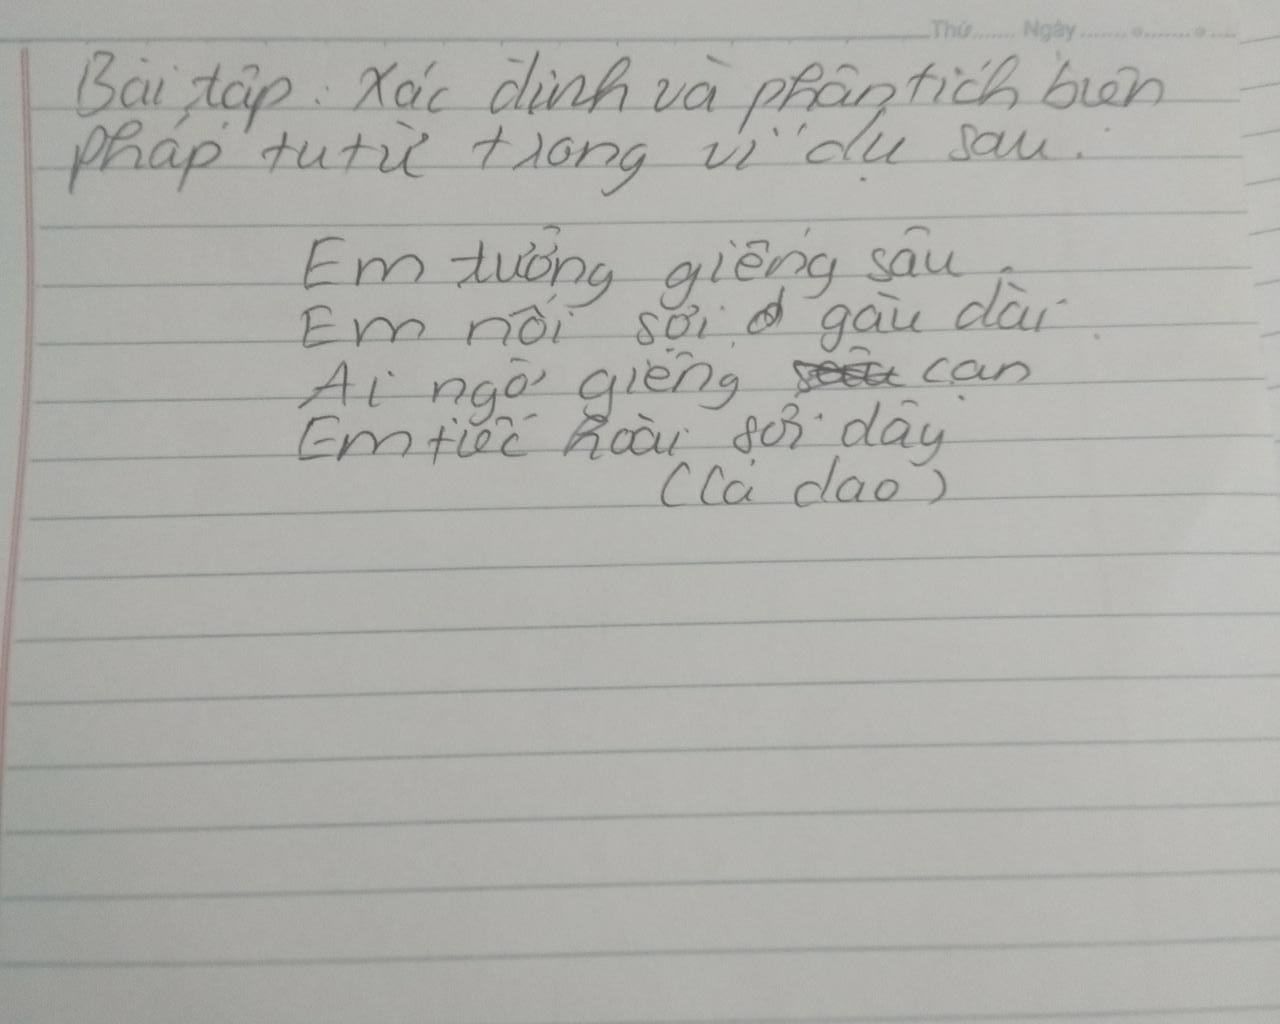 Thứ....... Ngày...................
Bài tập: Xác định và phân tích biện
pháp tu từ trong ví dụ sau.
Em tưởng giếng sâu
Em nối sợi gàu dài
Ai ngờ giếng cạn
Em tiếc hoài sợi dây
(Ca dao)